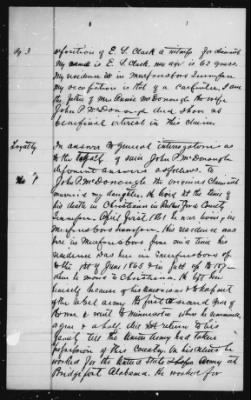 Ag 3 deposition of E. L. Clark a witness for claimant
My name is E. L. Clark my age is 62 years
My residence is in Murfreesboro Tennessee
My occupation is that of a carpenter, I am
the father of Mrs Annie McDonough the wife
John P. McDonough dec'd. I have no
beneficial interest in this claim
Loyalty In answer to General interrogatories as
to the loyalty of said John P. McDonough
deponent answers as follows to
No 1 John P. McDonough the original claimant
married my daughter, he lived at the time of
his death in Christiana in Rutherford County
Tennessee. April first 1861 he was living in
Murfreesboro Tennessee. His residence was
here in Murfreesboro from
residence was here in Murfreesboro up
to the 1st of June 1865 & in fall of
then he moved to Christiana. He left here
because of his unionism & to keep out
of the rebel army. He first
Rome & went to Minnesota where he remained
a year & a half. did not return to his
family till the Union Army had taken
possession of this Country. On his return he
worked for the United States Army at
Bridgeport Alabama. He worked for